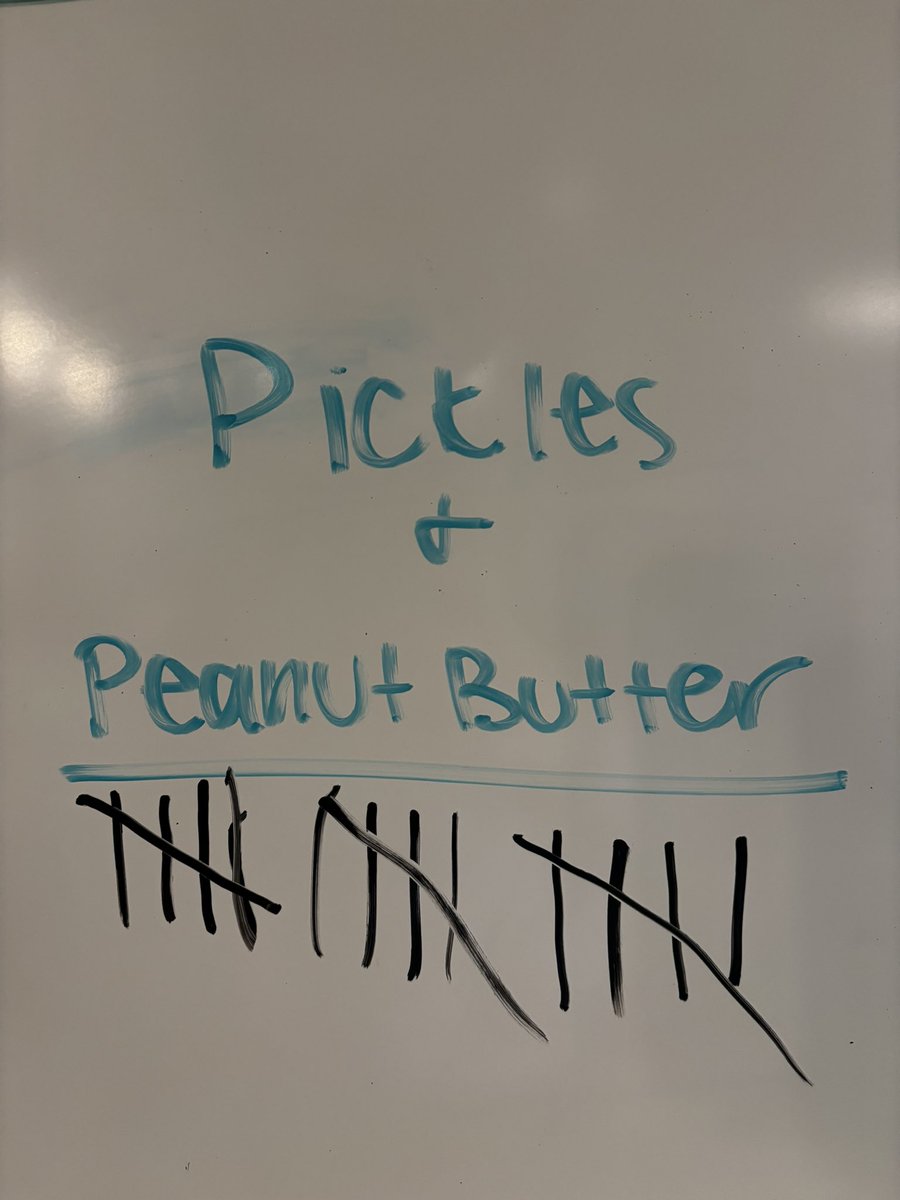 Pickles
&
Peanut Butter